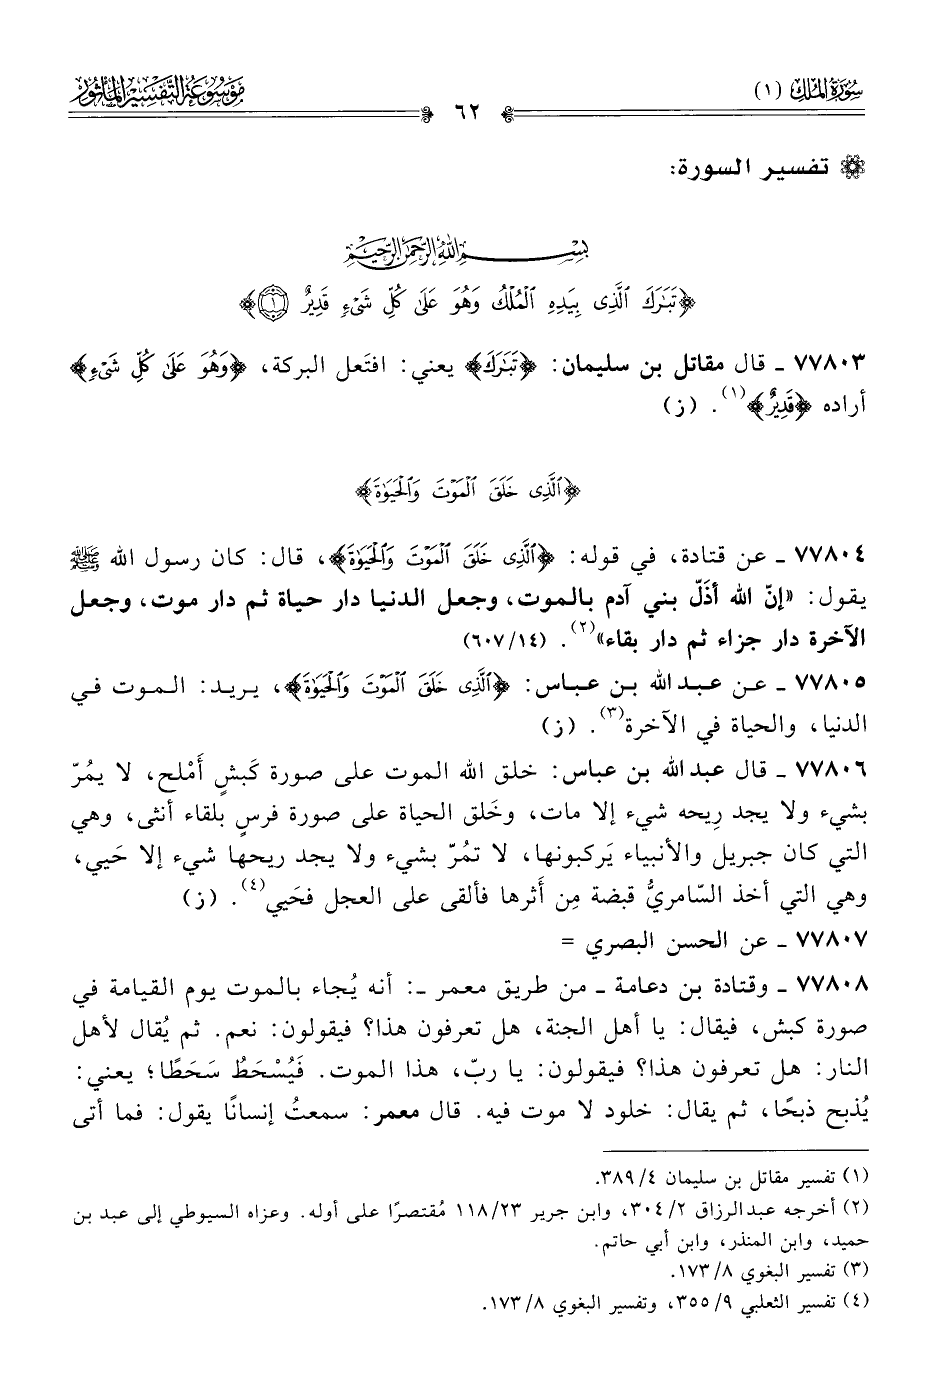 سورة الملك (١)
٦٢
موسوعة التفسير المأثور
تفسير السورة:
بسم الله الرحمن الرحيم
﴿تَبَٰرَكَ ٱلَّذِى بِيَدِهِ ٱلْمُلْكُ وَهُوَ عَلَىٰ كُلِّ شَىْءٍ قَدِيرٌ ۝١﴾
٧٧٨٠٣ ـ قال مقاتل بن سليمان: ﴿تَبَٰرَكَ﴾ يعني: افتَعل البركة، ﴿وَهُوَ عَلَىٰ كُلِّ شَىْءٍ﴾
أراده ﴿قَدِيرٌ﴾(١). (ز)
﴿ٱلَّذِى خَلَقَ ٱلْمَوْتَ وَٱلْحَيَوٰةَ﴾
٧٧٨٠٤ ـ عن قتادة، في قوله: ﴿ٱلَّذِى خَلَقَ ٱلْمَوْتَ وَٱلْحَيَوٰةَ﴾، قال: كان رسول الله ﷺ
يقول: «إنّ الله أذَلّ بني آدم بالموت، وجعل الدنيا دار حياة ثم دار موت، وجعل
الآخرة دار جزاء ثم دار بقاء»(٢). (١٤/٦٠٧)
٧٧٨٠٥ ـ عن عبد الله بن عباس: ﴿ٱلَّذِى خَلَقَ ٱلْمَوْتَ وَٱلْحَيَوٰةَ﴾، يريد: الموت في
الدنيا، والحياة في الآخرة(٣). (ز)
٧٧٨٠٦ ـ قال عبد الله بن عباس: خلق الله الموت على صورة كَبشٍ أَمْلح، لا يمُرّ
بشيء ولا يجد رِيحه شيء إلا مات، وخَلق الحياة على صورة فرسٍ بلقاء أنثى، وهي
التي كان جبريل والأنبياء يَركبونها، لا تمُرّ بشيء ولا يجد ريحها شيء إلا حَيي،
وهي التي أخذ السّامريُّ قبضة مِن أَثرها فألقى على العجل فحَيي(٤). (ز)
٧٧٨٠٧ ـ عن الحسن البصري =
٧٧٨٠٨ ـ وقتادة بن دعامة ـ من طريق معمر ـ: أنه يُجاء بالموت يوم القيامة في
صورة كبش، فيقال: يا أهل الجنة، هل تعرفون هذا؟ فيقولون: نعم. ثم يُقال لأهل
النار: هل تعرفون هذا؟ فيقولون: يا ربّ، هذا الموت. فَيُسْحَطُ سَحَطًا؛ يعني:
يُذبح ذبحًا، ثم يقال: خلود لا موت فيه. قال معمر: سمعتُ إنسانًا يقول: فما أتى
(١) تفسير مقاتل بن سليمان ٤/ ٣٨٩.
(٢) أخرجه عبد الرزاق ٢/ ٣٠٤، وابن جرير ٢٣/ ١١٨ مُقتصرًا على أوله. وعزاه السيوطي إلى عبد بن
حميد، وابن المنذر، وابن أبي حاتم.
(٣) تفسير البغوي ٨/ ١٧٣.
(٤) تفسير الثعلبي ٩/ ٣٥٥، وتفسير البغوي ٨/ ١٧٣.